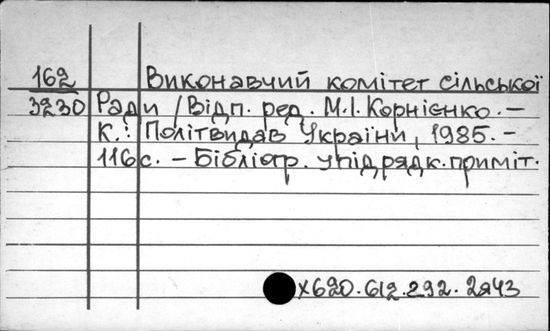 162 Виконавчий комітет сільської
3230 Ради / Відп. ред. М.І. Корнієнко. –
К.: Політвидав України, 1985. –
116 с. – Бібліогр. у підрядк. приміт.
X620.612.292.2я43